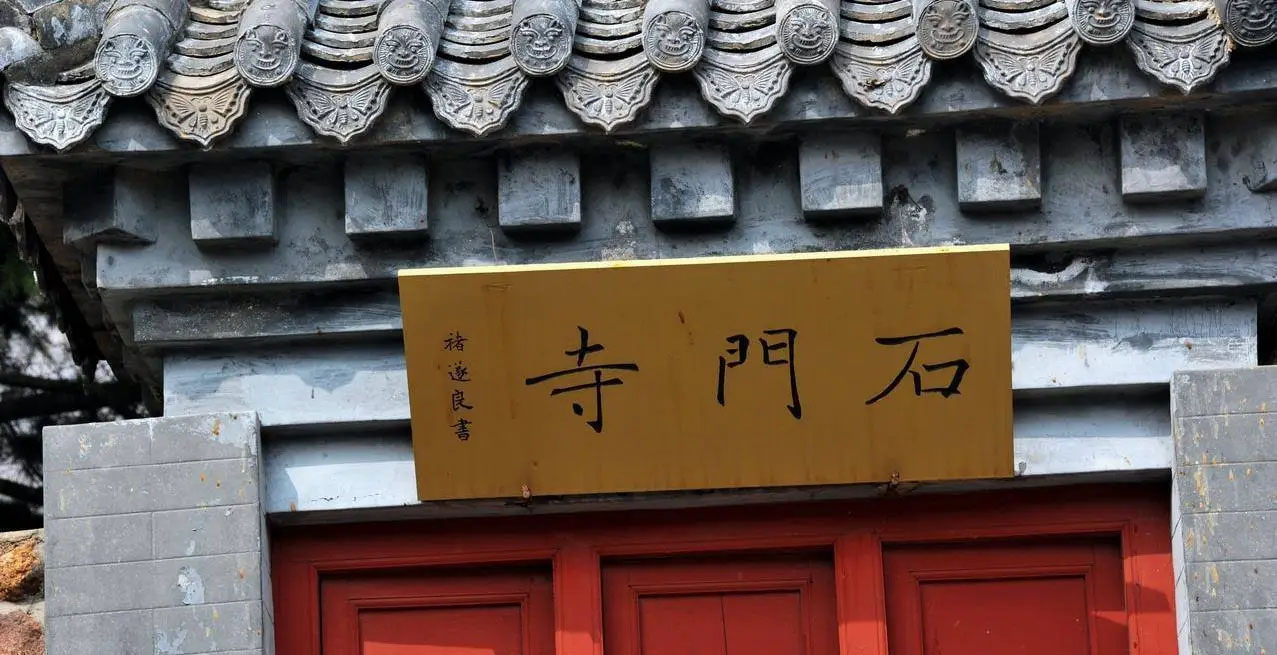 石門寺
褚遂良書